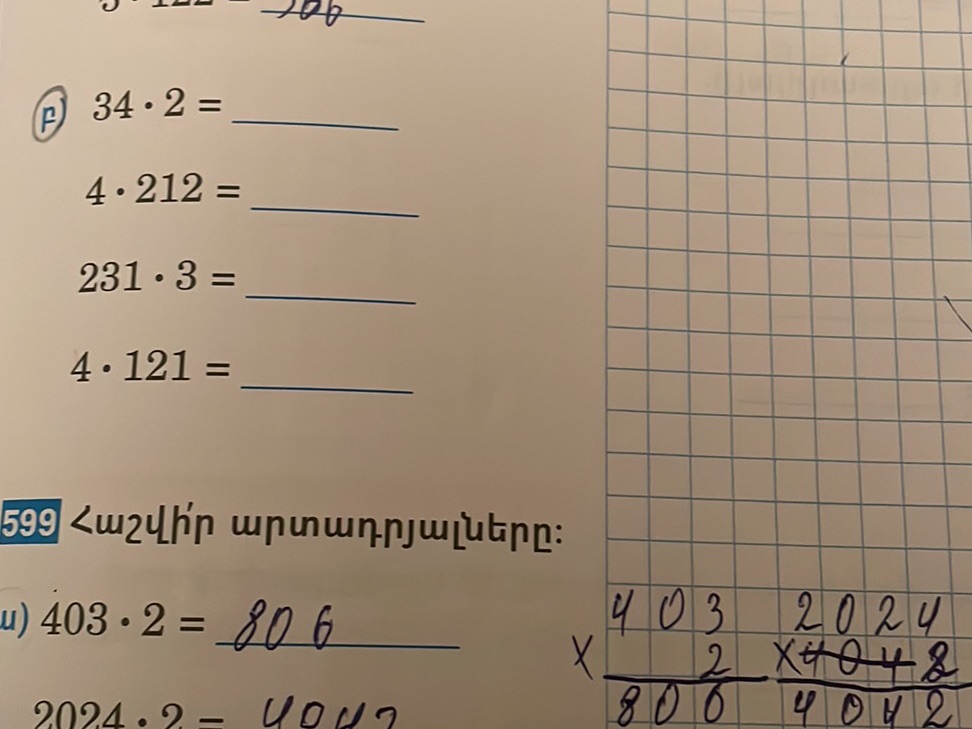 բ) 34 · 2 =
4 · 212 =
231 · 3 =
4 · 121 =
599 Հաշվի՛ր արտադրյալները:
ա) 403 · 2 = 806
2024 · 2 = 4042
403 2024
x 2 x4048 2
806 4042